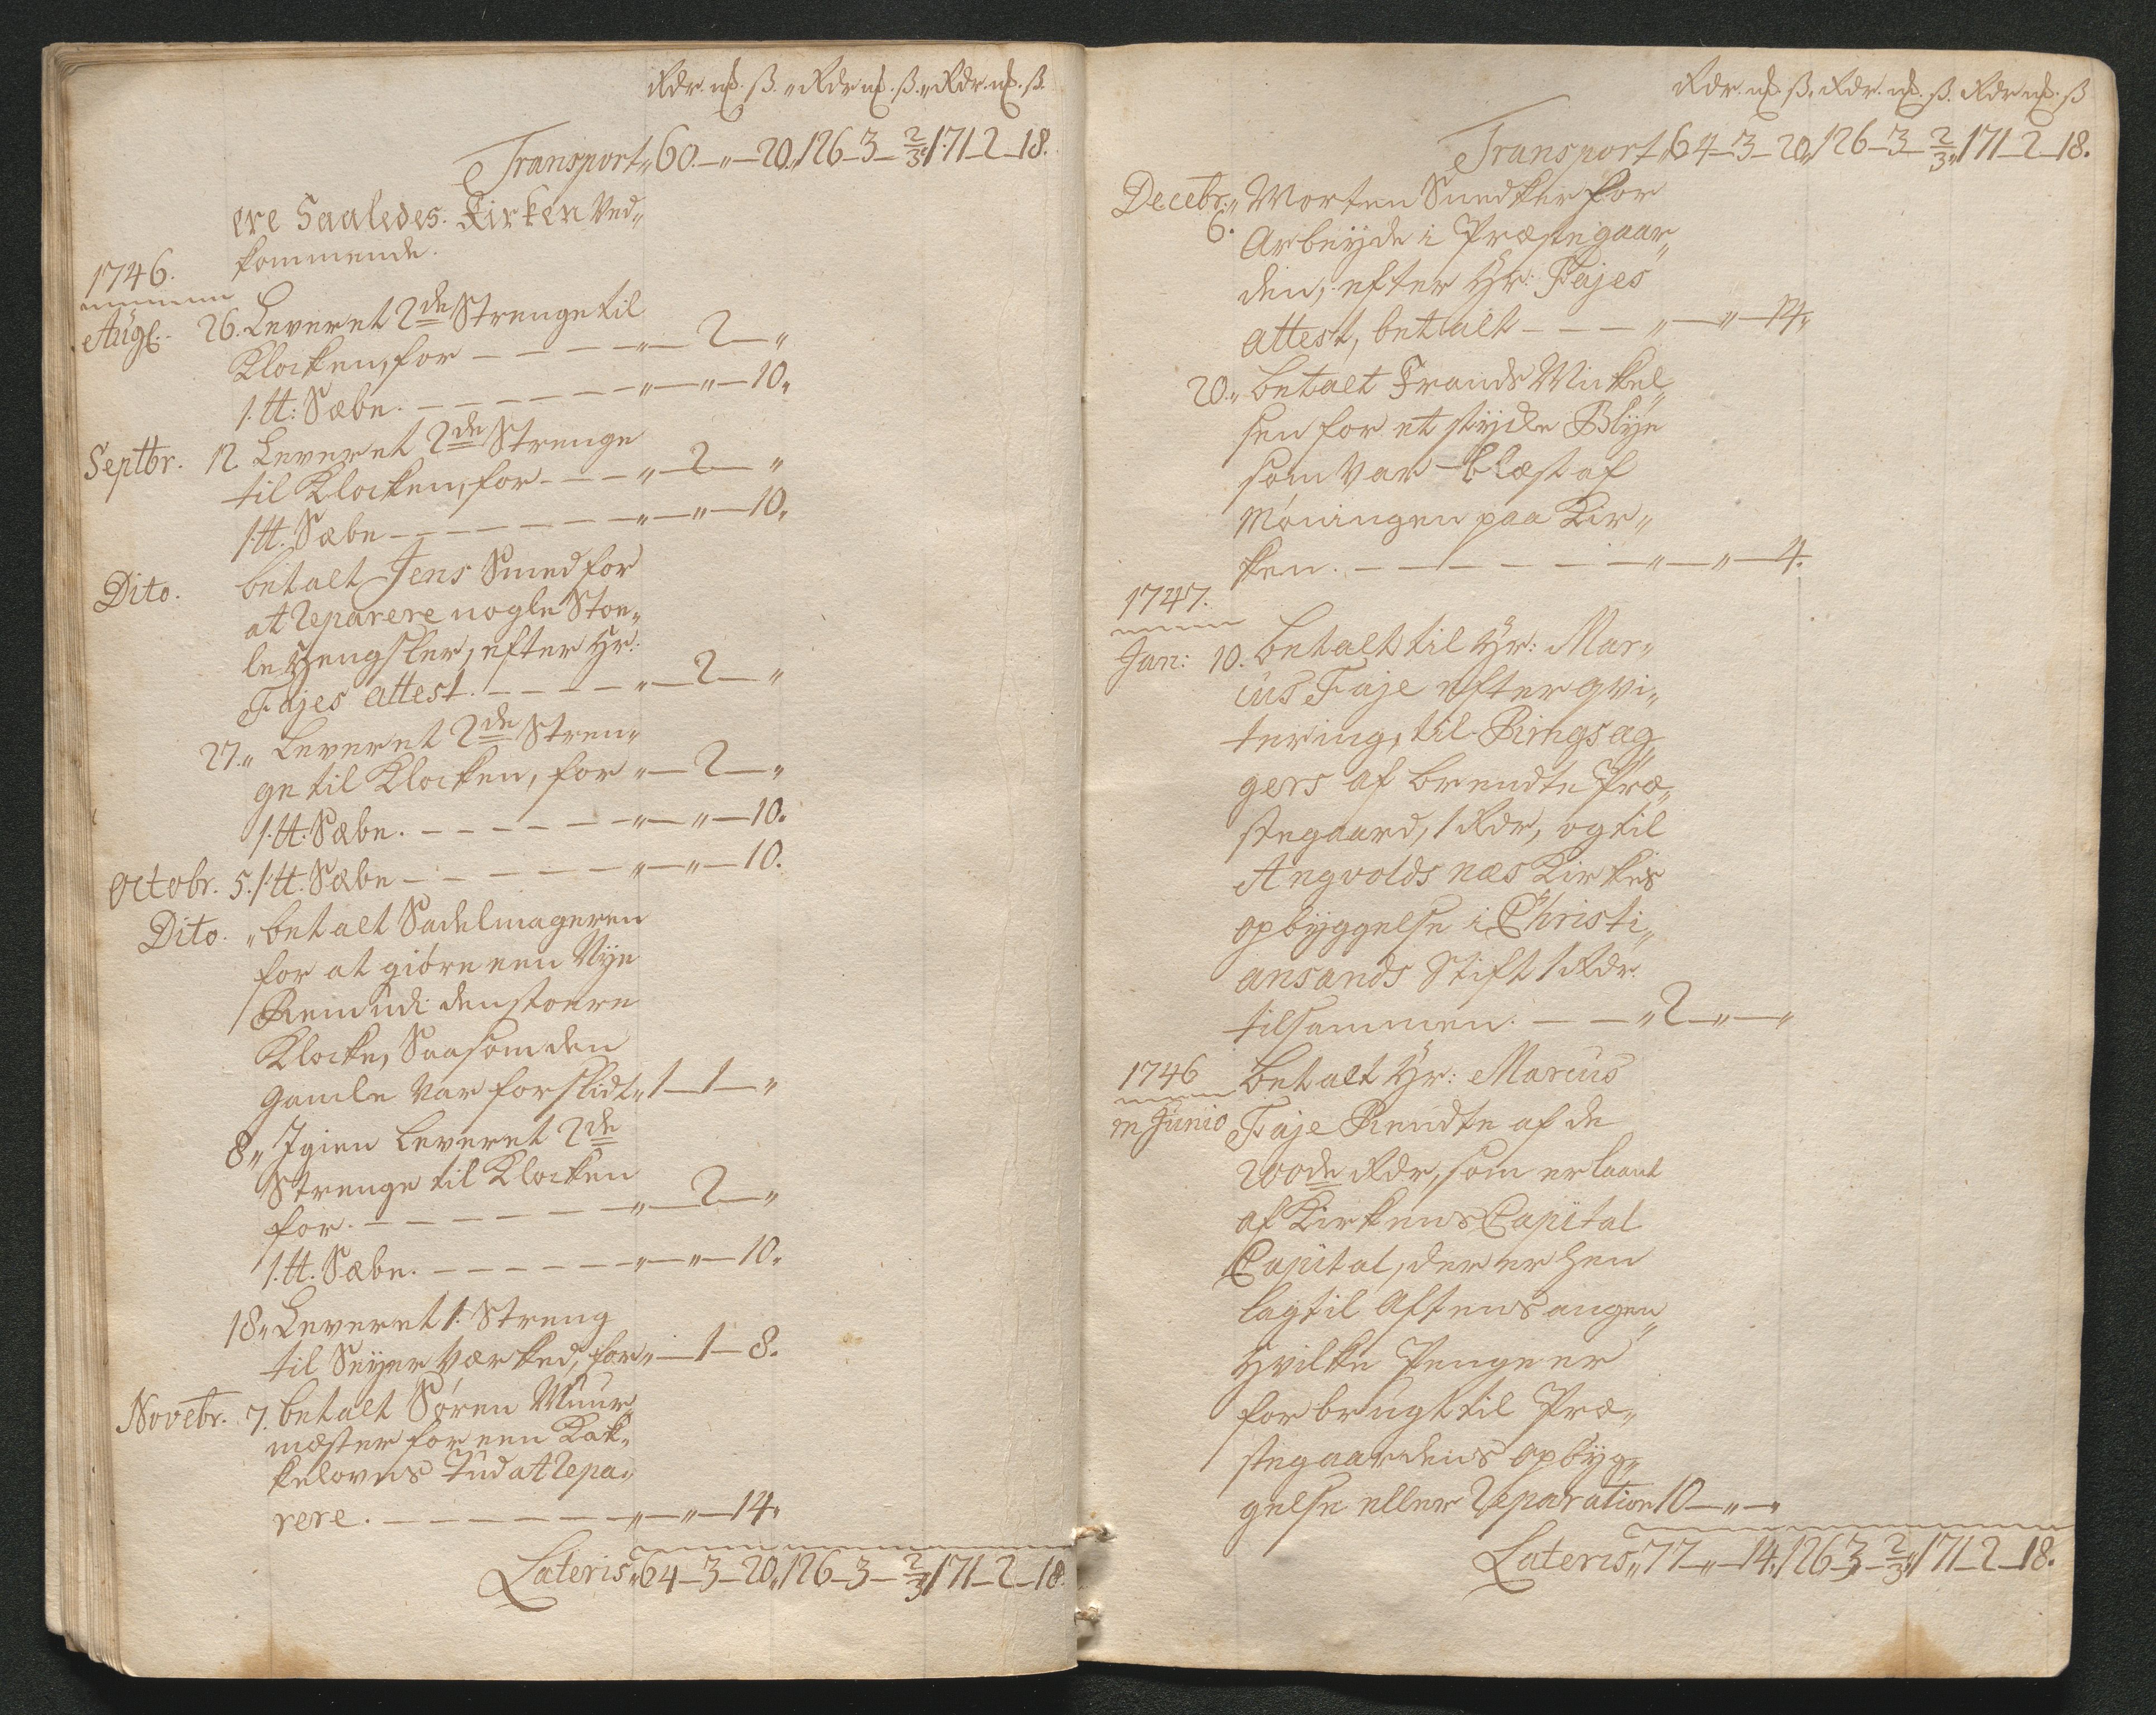 Rdr. mk. ß. „Rdr mk. ß. „Rdr. mk. ß.
Transport„ 60.—„—20.„126—3—2/3„171—2—18.
ere Saaledes. Kirken Ved„
kommende.
1746.
Augl: 26. Leveret 2de Strenge til
Klocken, for — — — — „—2—„
1. tt: Sæbe. — — — — — „—„—10„
Septbr. 12 Leveret 2de Strenge
til Klocken, for — — — „—2—„
1 tt. Sæbe — — — — — — „—„—10„
Dito. betalt Jens Smed for
at reparere nogle Stoe„
le Hengsler, efter Hr:
Fajes attest. — — — — „—2—„
27„ Leveret 2de Stren„
ge til Klocken, for „—2—„
1. tt: Sæbe. — — — — — „—„—10.
Octobr. 5. 1 tt. Sæbe — — — — — „—„—10.
Dito. „ betalt Sadelmageren
for at giöre een Nye
Rem udi den stoere
Klocke, Saasom den
gamle var forslidt„ 1—1—„
8„ Igien Leveret 2de
Strenge til Klocken
for. — — — — — — „—2—„
1. tt. Sæbe. — — — — — „—„—10.
18„ Leveret 1. Streng
til Seyer værked, for „—1—8.
Novebr. 7. betalt Sören Muur„
mæster for een Kak„
kelovns Tud at repa„
rere. — — — — — — „—„—14„
Lateris„ 64—3—20„126—3—2/3„171—2—18.
Rdr. mk. ß. Rdr. mk. ß. Rdr mk. ß
Transport„ 64—3—20„126—3—2/3„171—2—18.
Decebr: 6. „Morten Snedker for
Arbeyde i Præstegaar„
den, efter Hr: Fajes
attest, betalt — — — „—„—14„
20„ betalt Frands Mickel„
sen for et stycke Blye
som var blæst af
Möningen paa Kir„
ken. — — — — — — „—„—4.
1747.
Jan: 10. betalt til Hr: Mar„
cus Faje efter qvi„
tering, til Ringsag„
gers af brendte Præ„
stegaard, 1 Rdr, og til
Angvolds næs Kirkes
opbyggelse i Christi„
ansands Stift 1 Rdr.
tilsammen. — — „2—„—„
1746 betalt Hr: Marcus
m Junio Faje Rendte af de
200de Rdr, som er laant
af Kirkens Capital
Capital, der er hen
lagt til Aftensangen„
Hvilke Penge er
forbrugt til Præ„
stegaardens opbyg„
gelse eller Reparation 10—„—„
Lateris„ 77—„—14„126—3—2/3„171—2—18.